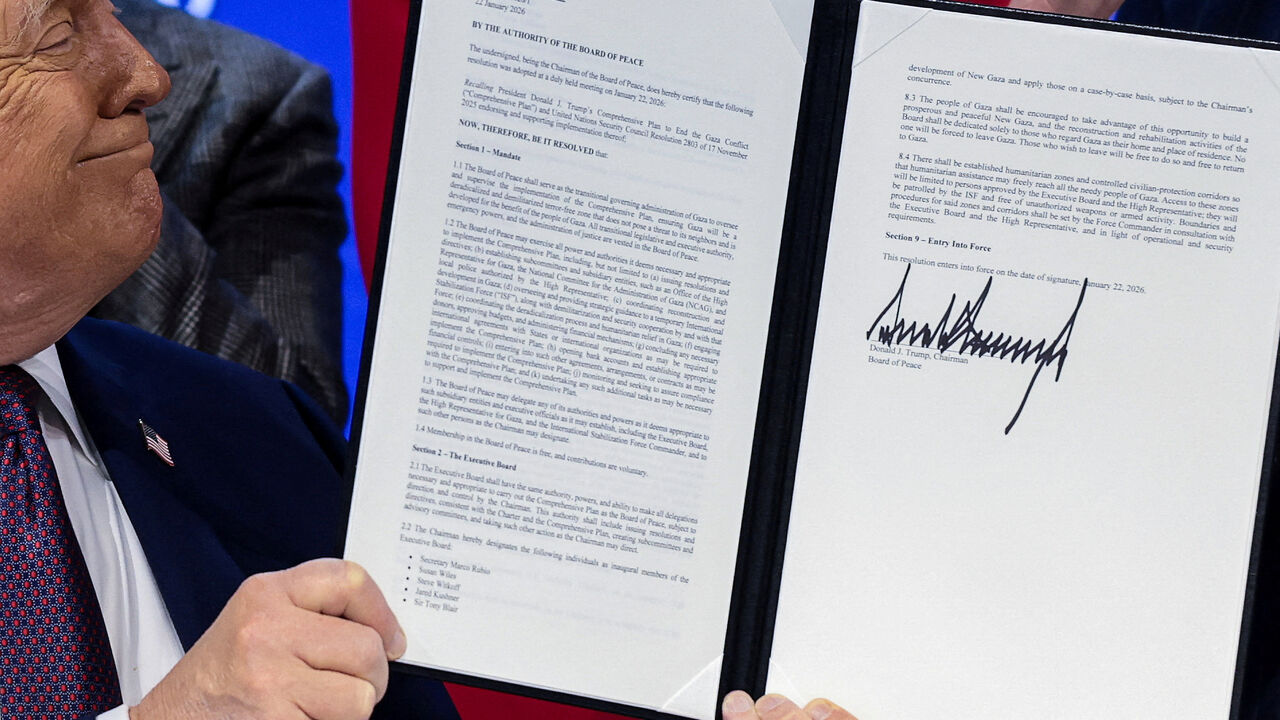 22 January 2026
BY THE AUTHORITY OF THE BOARD OF PEACE
The undersigned, being the Chairman of the Board of Peace, does hereby certify that the following
resolution was adopted at a duly held meeting on January 22, 2026:
Recalling President Donald J. Trump's Comprehensive Plan to End the Gaza Conflict
("Comprehensive Plan") and United Nations Security Council Resolution 2803 of 17 November
2025 endorsing and supporting implementation thereof;
NOW, THEREFORE, BE IT RESOLVED that:
Section 1 – Mandate
1.1 The Board of Peace shall serve as the transitional governing administration of Gaza to oversee
and supervise the implementation of the Comprehensive Plan, ensuring Gaza will be a
deradicalized and demilitarized terror-free zone that does not pose a threat to its neighbors and is
developed for the benefit of the people of Gaza. All transitional legislative and executive authority,
emergency powers, and the administration of justice are vested in the Board of Peace.
1.2 The Board of Peace may exercise all power and authorities it deems necessary and appropriate
to implement the Comprehensive Plan, including, but not limited to (a) issuing resolutions and
directives; (b) establishing subcommittees and subsidiary entities, such as an Office of the High
Representative for Gaza, the National Committee for the Administration of Gaza (NCAG), and
local police authorized by the High Representative; (c) coordinating reconstruction and
development in Gaza; (d) overseeing and providing strategic guidance to a temporary International
Stabilization Force ("ISF"), along with demilitarization and security cooperation by and with that
Force; (e) coordinating the deradicalization process and humanitarian relief in Gaza; (f) engaging
donors, approving budgets, and administering financial mechanisms; (g) concluding any necessary
international agreements with States or international organizations as may be required to
implement the Comprehensive Plan; (h) opening bank accounts and establishing appropriate
financial controls; (i) entering into such other agreements, arrangements, or contracts as may be
required to implement the Comprehensive Plan; (j) monitoring and seeking to assure compliance
with the Comprehensive Plan; and (k) undertaking any such additional tasks as may be necessary
to support and implement the Comprehensive Plan.
1.3 The Board of Peace may delegate any of its authorities and powers as it deems appropriate to
such subsidiary entities and executive officials as it may establish, including the Executive Board,
the High Representative for Gaza, and the International Stabilization Force Commander, and to
such other persons as the Chairman may designate.
1.4 Membership in the Board of Peace is free, and contributions are voluntary.
Section 2 – The Executive Board
2.1 The Executive Board shall have the same authority, powers, and ability to make all delegations
necessary and appropriate to carry out the Comprehensive Plan as the Board of Peace, subject to
direction and control by the Chairman. This authority shall include issuing resolutions and
directives, consistent with the Charter and the Comprehensive Plan, creating subcommittees and
advisory committees, and taking such other action as the Chairman may direct.
2.2 The Chairman hereby designates the following individuals as inaugural members of the
Executive Board:
• Secretary Marco Rubio
• Susan Wiles
• Steve Witkoff
• Jared Kushner
• Sir Tony Blair
development of New Gaza and apply those on a case-by-case basis, subject to the Chairman's
concurrence.
8.3 The people of Gaza shall be encouraged to take advantage of this opportunity to build a
prosperous and peaceful New Gaza, and the reconstruction and rehabilitation activities of the
Board shall be dedicated solely to those who regard Gaza as their home and place of residence. No
one will be forced to leave Gaza. Those who wish to leave will be free to do so and free to return
to Gaza.
8.4 There shall be established humanitarian zones and controlled civilian-protection corridors so
that humanitarian assistance may freely reach all the needy people of Gaza. Access to these zones
will be limited to persons approved by the Executive Board and the High Representative; they will
be patrolled by the ISF and free of unauthorized weapons or armed activity. Boundaries and
procedures for said zones and corridors shall be set by the Force Commander in consultation with
the Executive Board and the High Representative, and in light of operational and security
requirements.
Section 9 – Entry Into Force
This resolution enters into force on the date of signature, January 22, 2026.
Donald J. Trump, Chairman
Board of Peace